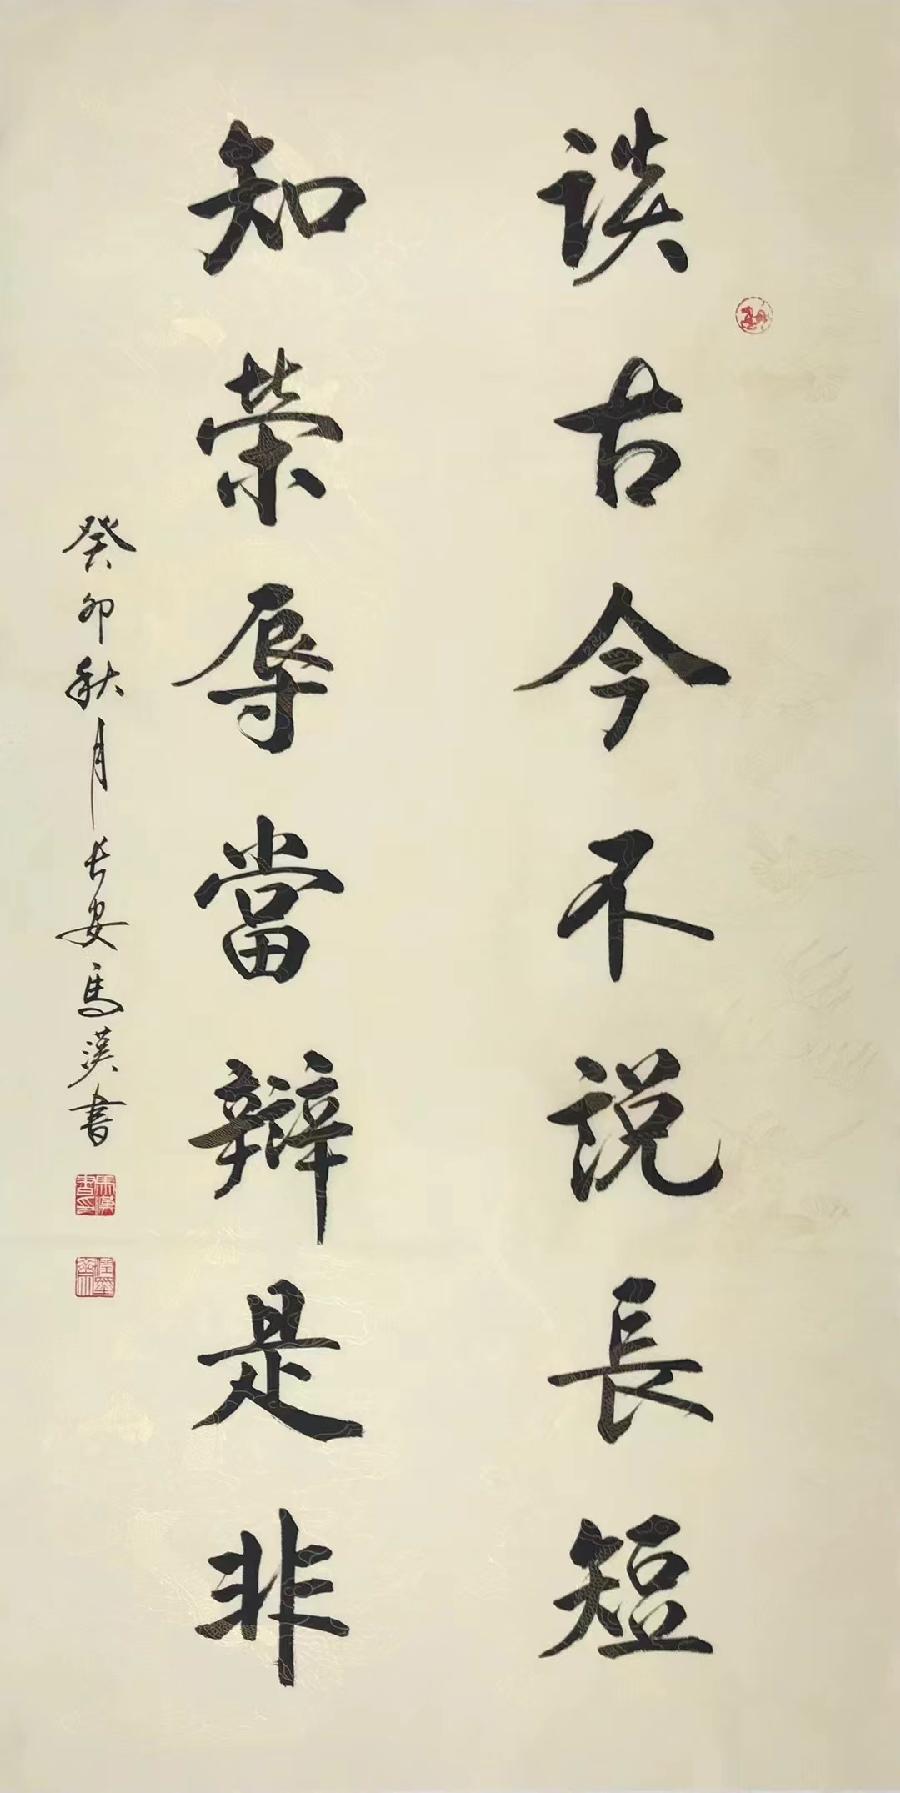 談古今不説長短
知榮辱當辯是非
癸卯秋月长安馬漢書